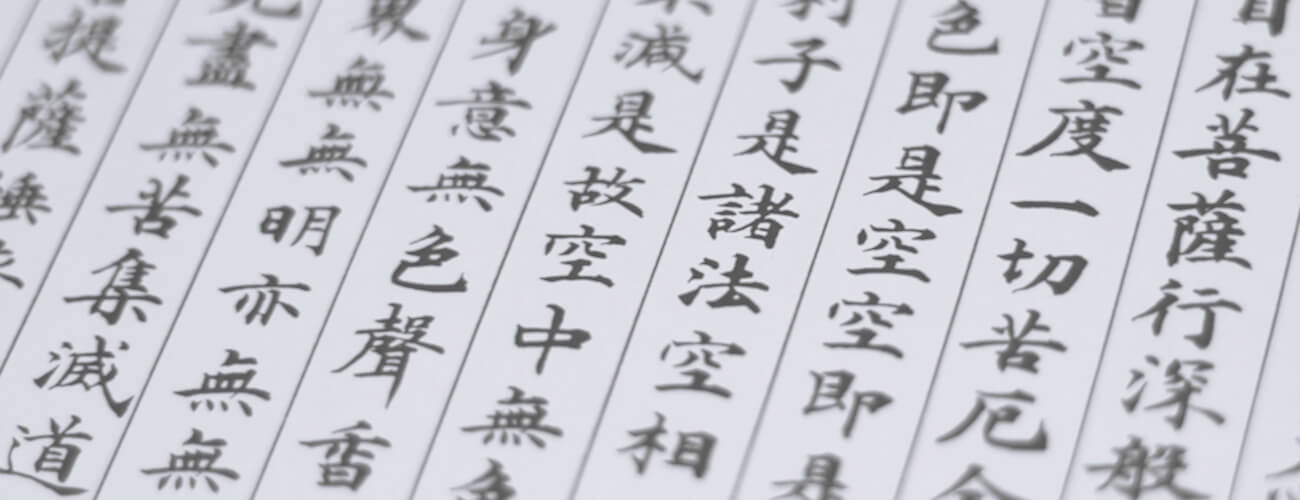 自在菩薩行深般
皆空度一切苦厄舍
色即是空空即是
利子是諸法空相
減是故空中無色
身意無色聲香
界無無明亦無無
盡無苦集滅道
提薩埵